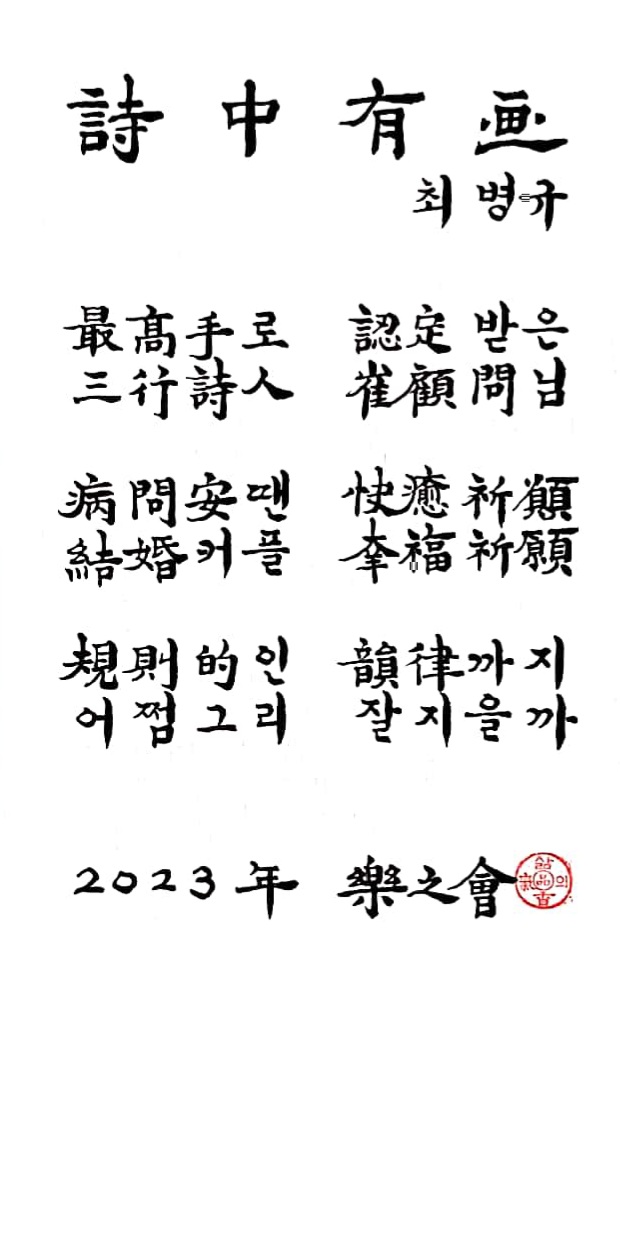 詩中有画
최병규
最高手로 認定받은
三行詩人 崔顧問님
病問安땐 快癒祈願
結婚커플 幸福祈願
規則的인 韻律까지
어쩜그리 잘지을까
2023年 樂之會